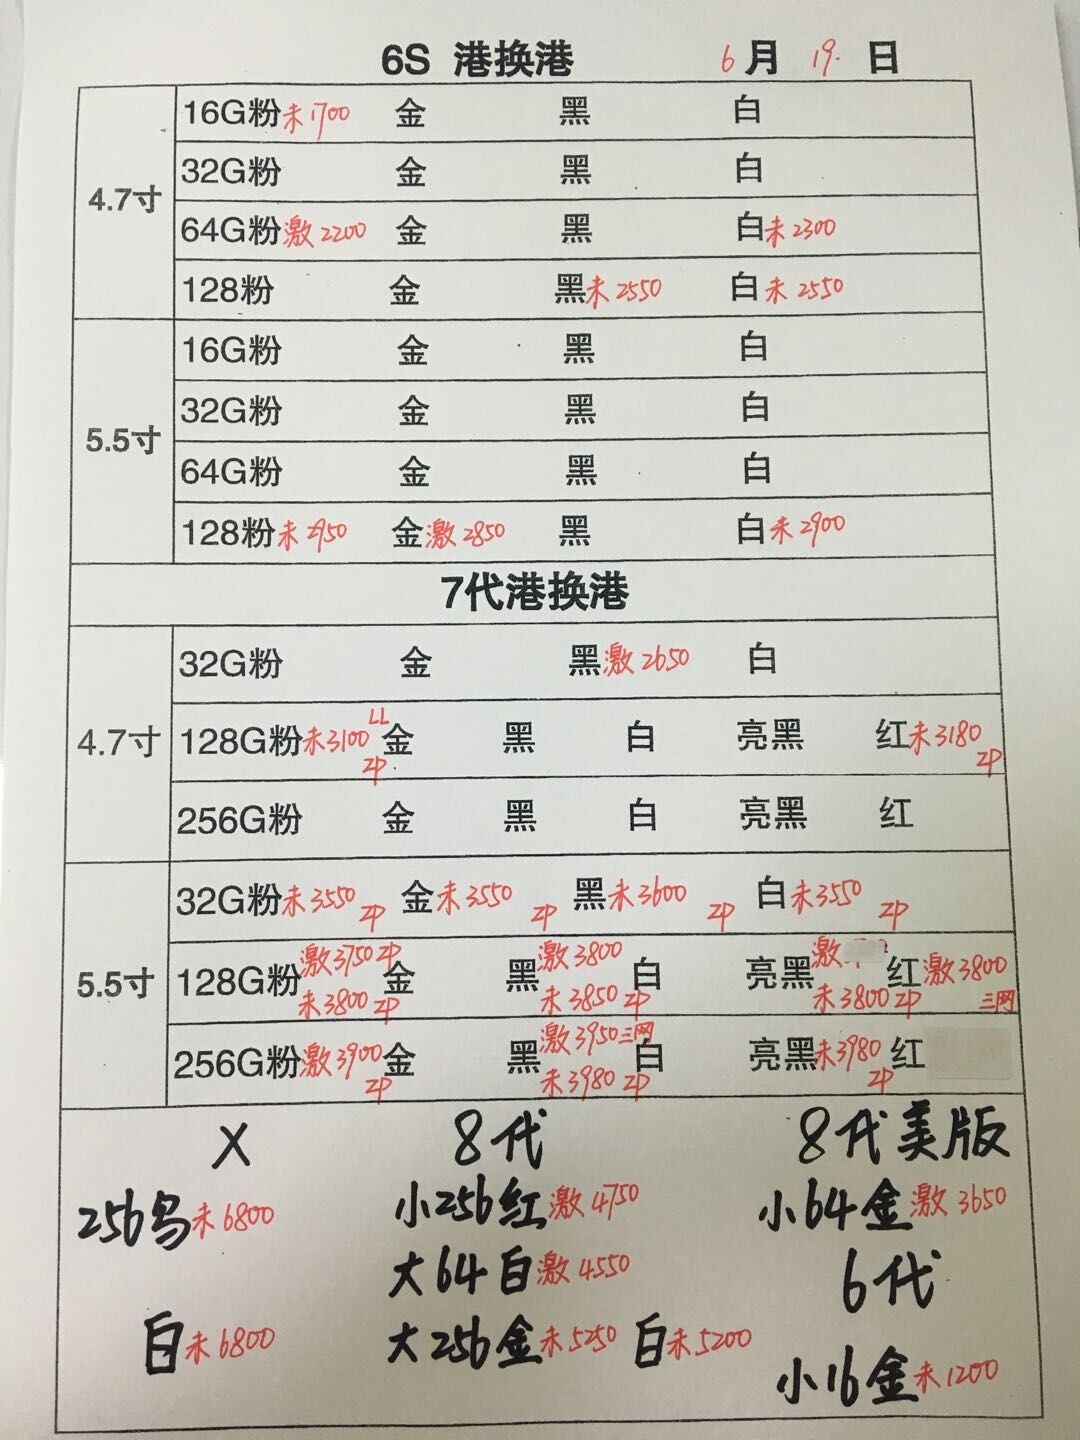 6S 港换港 6月19日
4.7寸
16G粉未1700 金 黑 白
32G粉 金 黑 白
64G粉激2200 金 黑 白未2300
128粉 金 黑未2550 白未2550
5.5寸
16G粉 金 黑 白
32G粉 金 黑 白
64G粉 金 黑 白
128粉未2950 金激2850 黑 白未2900
7代港换港
4.7寸
32G粉 金 黑激2650 白
128G粉未3100 LL ZP 金 黑 白 亮黑 红未3180 ZP
256G粉 金 黑 白 亮黑 红
5.5寸
32G粉未3550 ZP 金未3550 ZP 黑未3600 ZP 白未3550 ZP
128G粉激3750 ZP 未3800 ZP 金 黑激3800 未3850 ZP 白 亮黑激 未3800 ZP 红激3800 三网
256G粉激3900 ZP 金 黑激3950三网 未3980 ZP 白 亮黑未3980 ZP 红
X 8代 8代美版
256乌未6800 小256红激4750 小64金激3650
大64白激4550 6代
白未6800 大256金未5250 白未5200
小16金未1200